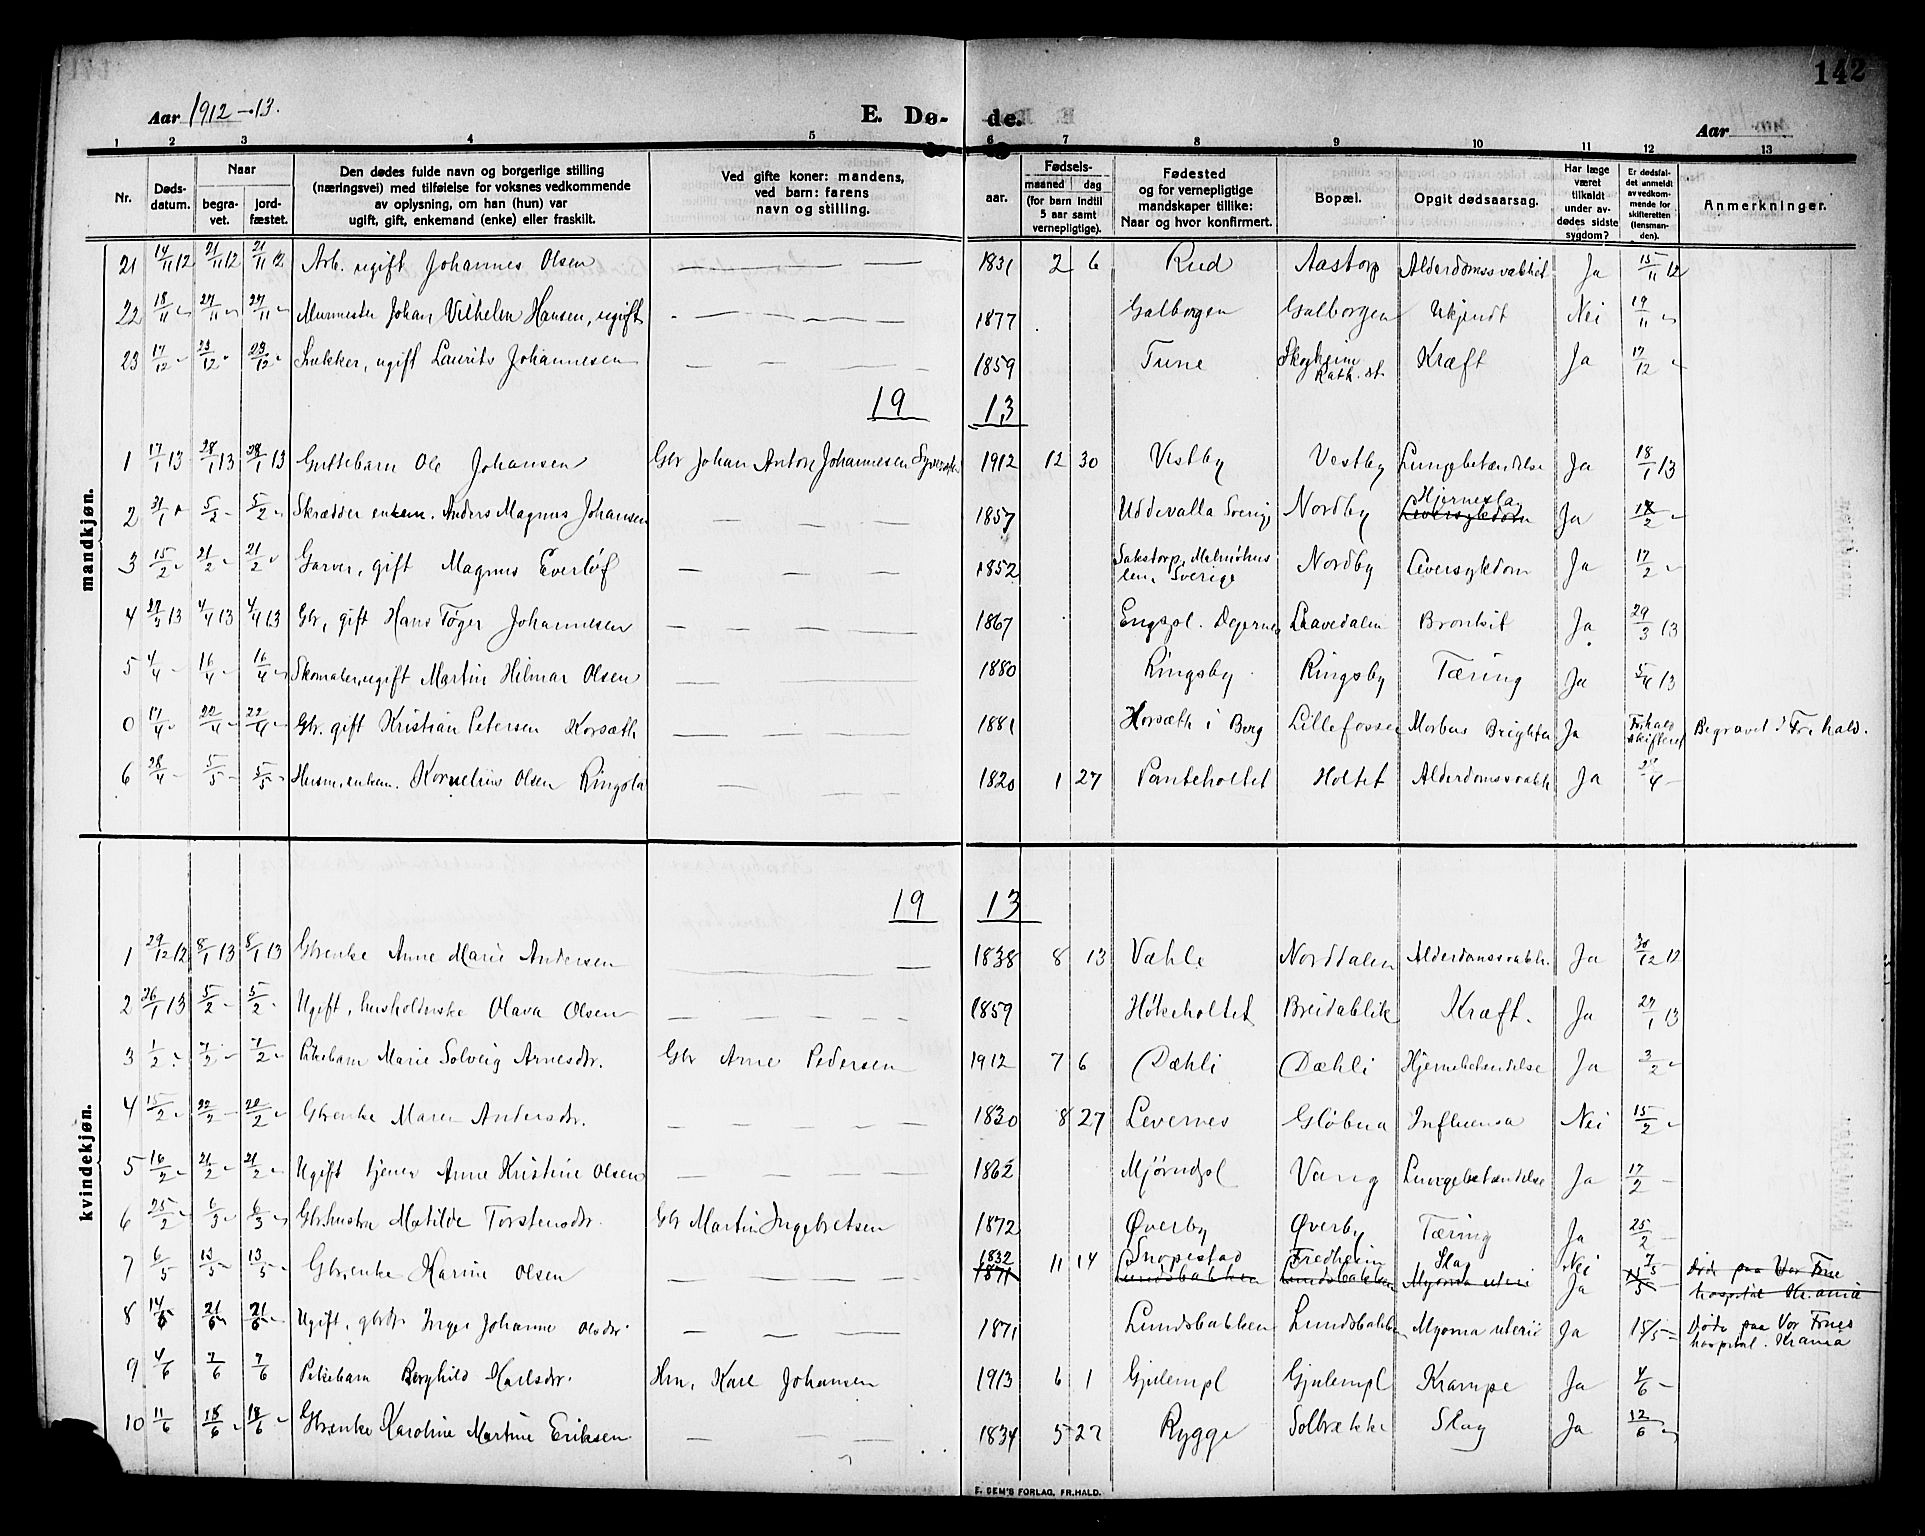 142
Aar 1912-13.
E. Dø-
de.
Aar
1 2 3 4 5 6 7 8 9 10 11 12 13
Nr.
Døds-
datum.
Naar
begra-
vet.
jord-
fæstet.
Den dødes fulde navn og borgerlige stilling
(næringsvei) med tilføielse for voksnes vedkommende
av oplysning, om han (hun) var
ugift, gift, enkemand (enke) eller fraskilt.
Ved gifte koner: mandens,
ved barn: farens
navn og stilling.
aar.
Fødsels-
maaned dag
(for barn indtil
5 aar samt
vernepligtige).
Fødested
og for vernepligtige
mandskaper tillike:
Naar og hvor konfirmert.
Bopæl.
Opgit dødsaarsag.
Har læge
været
tilkaldt
under av-
dødes sidste
sygdom?
Er dødsfal-
det anmeldt
av vedkom-
mende for
skifteretten
(lensman-
den).
Anmerkninger.
mandkjøn.
21 14/11 12 21/11 12 21/11 12 Arb. ugift Johannes Olsen — — — 1831 2 6 Rud Aastorp Alderdomssvakhet Ja 15/11 12
22 18/11 " 27/11 " 27/11 " Murmester Johan Vilhelm Hansen, ugift — — — 1877 Galborgen Galborgen Ukjendt Nei 19/11 "
23 17/12 " 23/12 " 23/12 " ugift Laurits Johannesen — — — 1859 Tune Skogheim Kræft Ja 17/12 "
19 13
1 17/1 13 28/1 13 28/1 13 Guttebarn Ole Johansen Gbr Johan Anton Johannesen 1912 12 30 Vestby Vestby Lungebetændelse Ja 18/1 13
2 31/1 " 5/2 " 5/2 " Skrædder enkem. Anders Magnus Johansen — — — 1857 Uddevalla Sverig Nordby Leversykdom Hjerneslag Ja 2 "
3 15/2 " 21/2 " 21/2 " Garver, gift Magnus Everløf — — — 1852 Malmøhus len, Sverige Nordby Leversykdom Ja 17/2 "
4 13 4/4 13 4/4 13 Gbr, gift Hans Tøger Johannesen — — — 1867 Løavedalen Bronkit Ja 29/3 13
5 4/4 " 16/4 " 16/4 " Skomaker, ugift Martin Hilmar Olsen — — — 1880 Ringsby Ringsby Tæring Ja 5/4 13
0 17/4 " 22/4 " 22/4 " Gbr. gift Kristian Petersen Korsæth — — — 1881 Korsæth i Berg Lillefossen Morbus Brightii Ja Fr.hald skifteret Begravet i Fr. hald.
6 28/4 " 5/5 " 5/5 " Husm. enkem. Kornelius Olsen — — — 1820 1 27 Panteholtet Holtet Alderdomssvakh Ja 4 "
kvindekjøn.
19 13
1 29/12 12 8/1 13 8/1 13 Gbrenke Anne Marie Andersen — — — 1838 8 13 Væhle Norddalen Alderdomssvakh. Ja 30/12 12
2 26/1 13 5/2 " 5/2 " Ugift, husholderske Olava Olsen — — — 1859 Høkeholtet Breidablik Kræft. Ja 27/1 13
3 1/2 " 7/2 " 7/2 " Pikebarn Marie Solveig Arnesdr. Gbr Arne Pedersen 1912 7 6 Dæhli Dæhli Hjernebetændelse Ja 3/2 "
4 15/2 " 22/2 " 22/2 " Gbrenke Maren Andersdr. — — — 1830 8 27 Levernes Gløbua Influensa Nei 15/2 "
5 16/2 " 21/2 " 21/2 " Ugift tjener Anne Kristine Olsen — — — 1862 Vang Lungebetændelse Ja 17/2 "
6 25/2 " 6/3 " 6/3 " Gbr.hustru Matilde Torstensdr. Gbr Martin Ingebretsen 1872 Øverby Øverby Tæring Ja 25/2 "
7 6/5 13/5 " 13/5 " Gbr.enke Karine Olsen — — — 1832 11 14 Snopestad Fredheim Slag Nei 7/5 "
1871 Lundsbakken Lundsbakken Myoma uterii Ja Døde paa Vor Frue hospital Kr.ania
8 14/5 21/5 " 21/5 " Ugift, gbrdr Inger Johanne Olsdr. — — — 1871 Lundsbakken Lundsbakken Myoma uterii Ja 15/5 " Døde paa Vor Frues hospital. Krania
9 4/6 7/6 7/6 Pikebarn Borghild Karlsdr. Hm, Karl Johansen 1913 6 1 Gjulempl Gjulempl Krampe Ja 4/6 "
10 11/6 18/6 " 18/6 " Gbrenke Karoline Martine Eriksen — — — 1834 5 27 Rygge Solbrække Slag Ja 12/6 "
E. SEM'S FORLAG, FR.HALD.